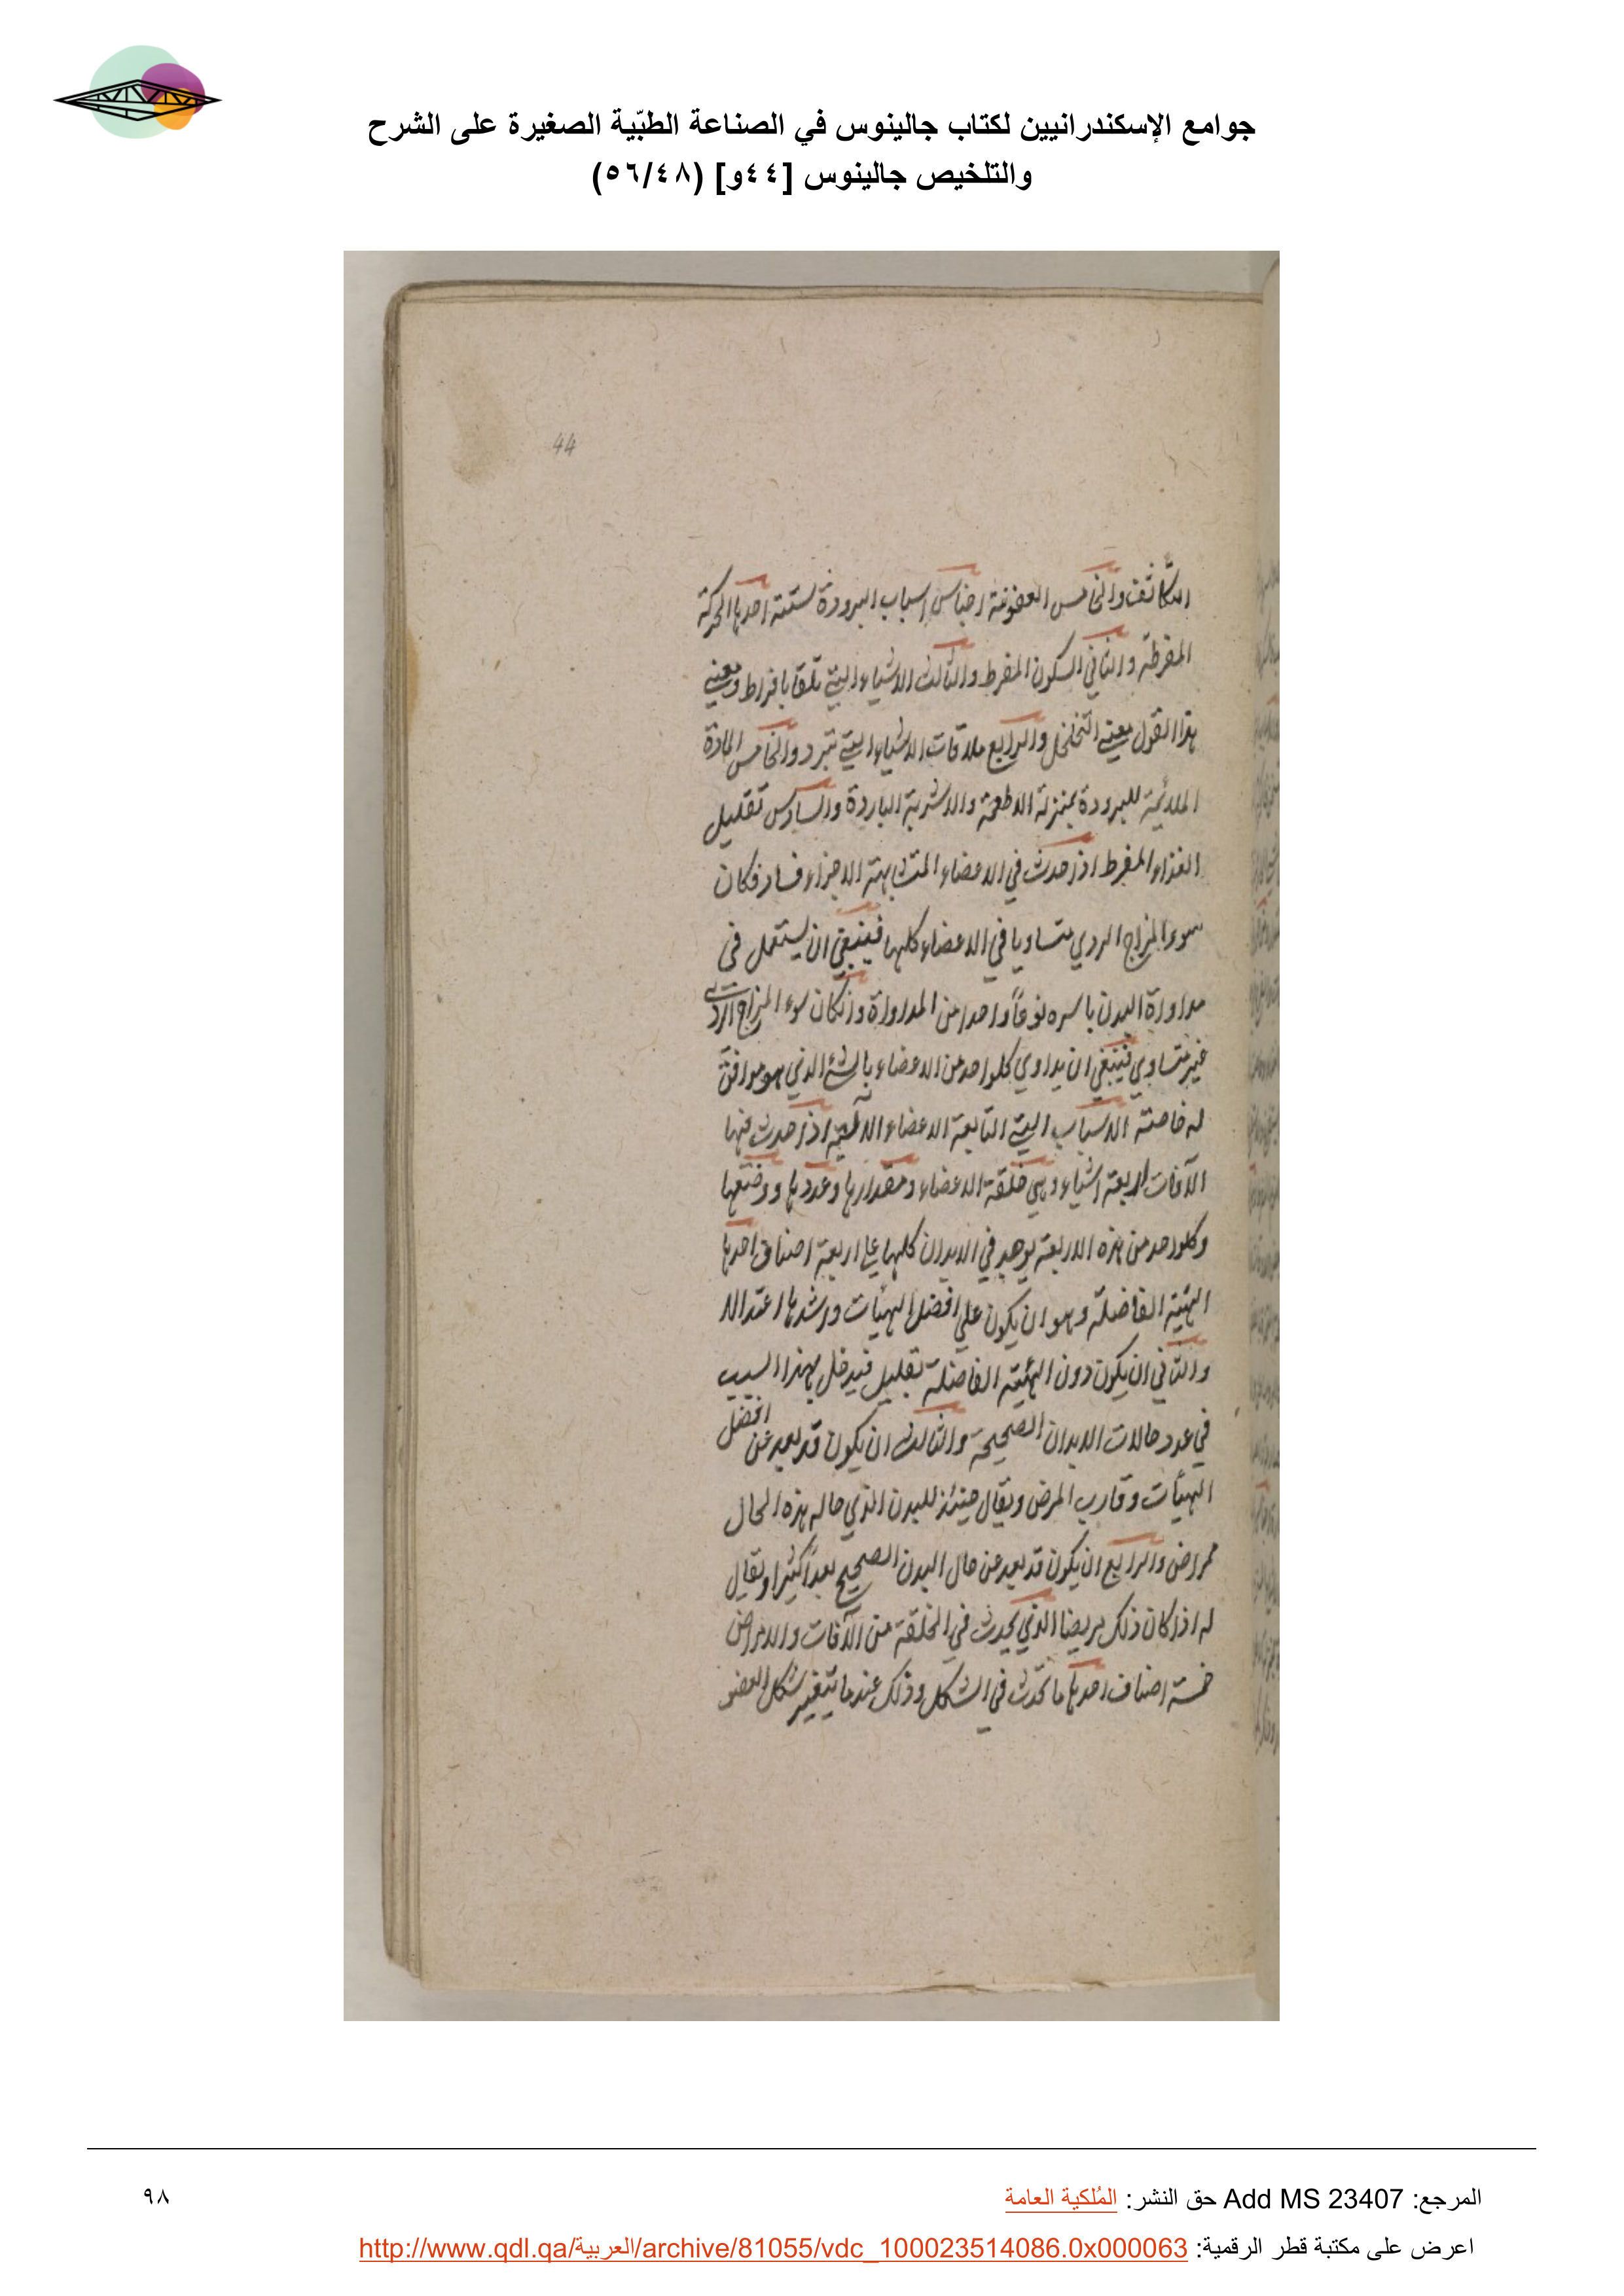 جوامع الإسكندرانيين لكتاب جالينوس في الصناعة الطبّية الصغيرة على الشرح
والتلخيص جالينوس [٤٤و] (٥٦/٤٨)
44
التكاثف والخامس العفونة اجناس اسباب البرودة ستة احدها الحركة
المفرطة والثاني السكون المفرط والثالث الاشياء التي تلقا بافراط ومعني
هذا القول معني التخلخل والرابع ملاقات الاشياء التي تبرد والخامس المادة
الملائمة للبرودة بمنزلة الاطعمة والاشربة الباردة والسادس تقليل
الغذاء المفرط اذا حدث في الاعضاء المتشابهة الاجزاء فساد فكان
سوء المزاج الردي متساويا في الاعضاء كلها فينبغي ان يستعمل في
مداواة البدن باسره نوعاً واحدا من المداواة وان كان سوء المزاج الردي
غير متساوي فينبغي ان يداوي كلواحد من الاعضاء بالشئ الذي هو موافق
له خاصة الاسباب التي التابعة الاعضاء الالية اذا حدث فيها
الآفات اربعة اشياء وهي خلقة الاعضاء ومقدارها وعددها ووضعها
وكلواحد من هذه الاربعة يوجد في الابدان كلها علي اربعة اصناف احدها
الهيئة الفاضلة وهو ان يكون علي افضل الهيئات واشدها اعتدالا
والثاني ان يكون دون الهيئة الفاضلة بقليل فيدخل بهذا السبب
في عدد حالات الابدان الصحيحة والثالث ان يكون قد بعد عن افضل
الهيئات وقارب المرض ويقال حينئذ للبدن الذي حاله هذه الحال
ممراض والرابع ان يكون قد بعد عن حال البدن الصحيح بعداً كثيرا ويقال
له اذا كان ذلك مريضا الذي يحدث في الخلقة من الآفات والامراض
خمسة اصناف احدها ما تحدث في الشكل وذلك عندما يتغير شكل العضو
المرجع: Add MS 23407 حق النشر: المُلكية العامة
٩٨
اعرض على مكتبة قطر الرقمية: http://www.qdl.qa/العربية/archive/81055/vdc_100023514086.0x000063